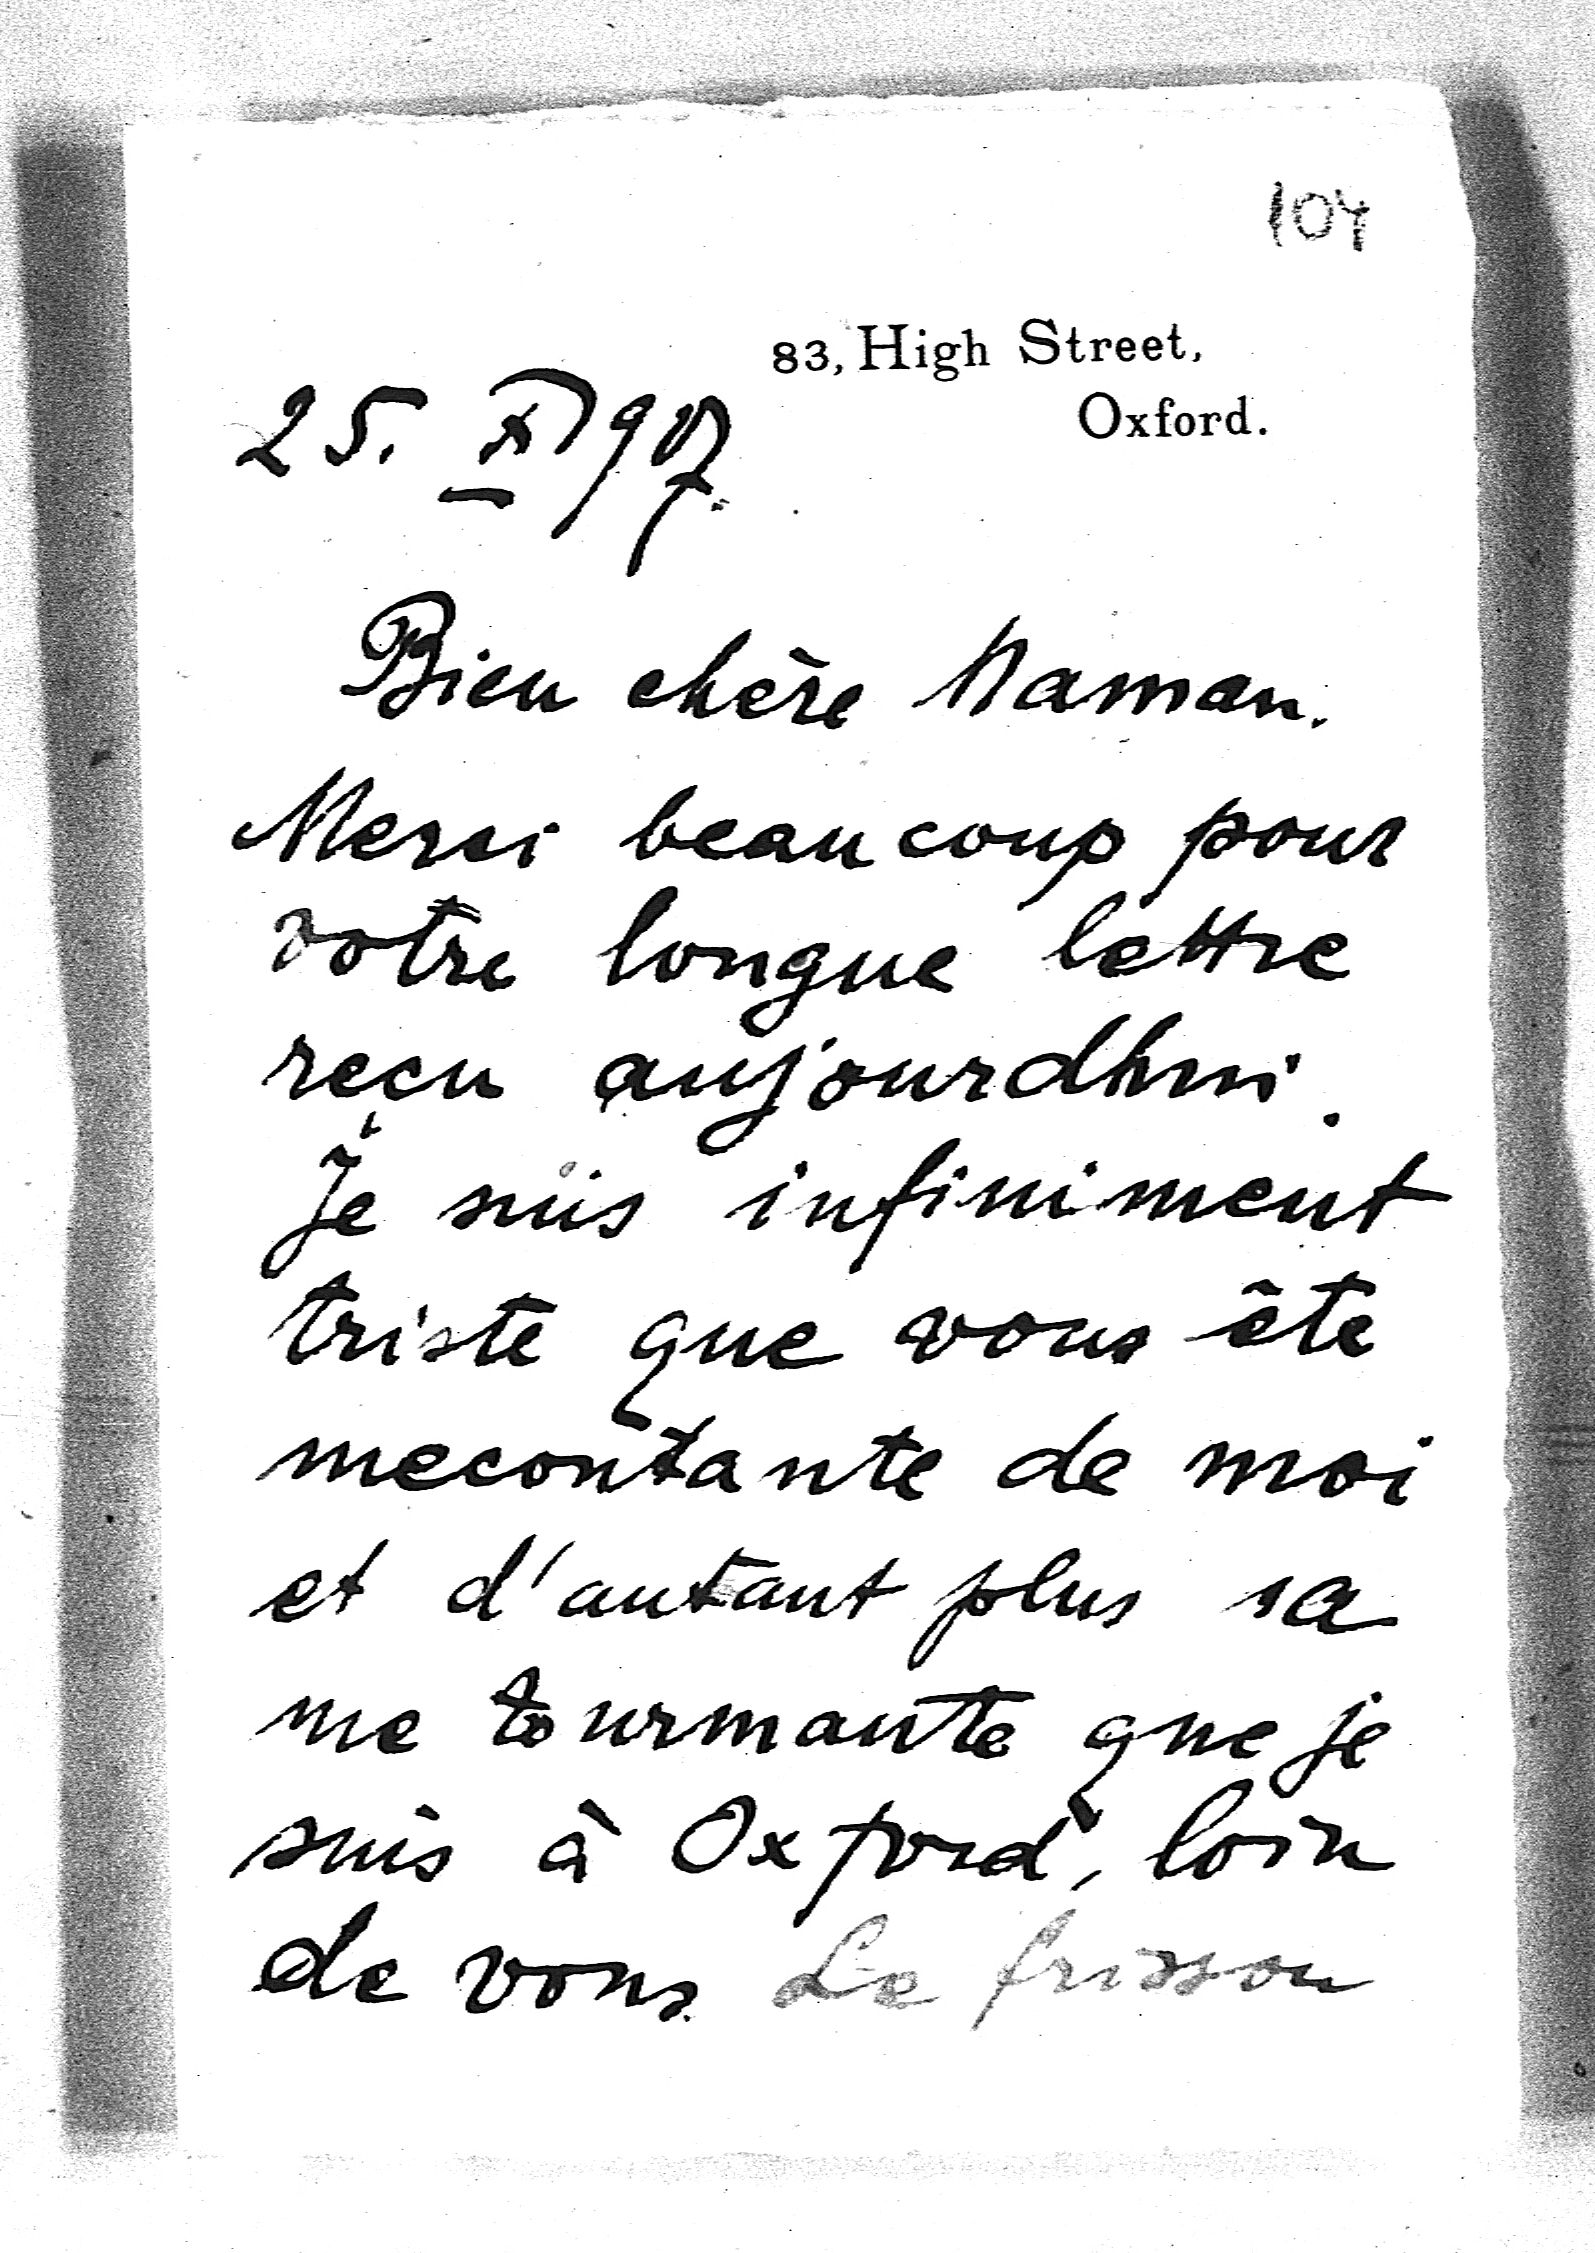 104
83, High Street,
Oxford.
25. X 907.
Bien chère Maman.
Merci beaucoup pour
votre longue lettre
reçu aujourdhui.
Je suis infiniment
triste que vous ête
mecontante de moi
et d'autant plus sa
me tourmante que je
suis à Oxford, loin
de vous. Le frisson